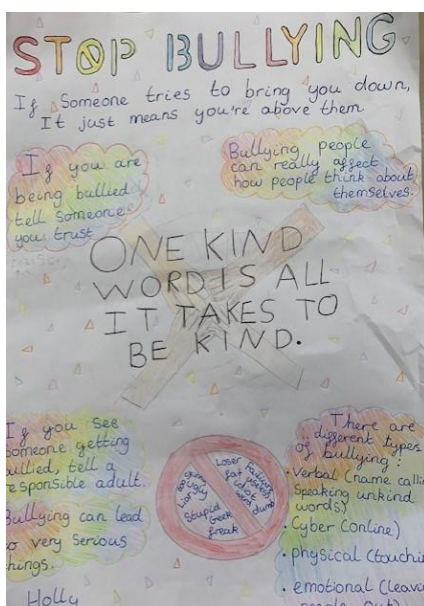 STOP BULLYING
If Someone tries to bring you down,
It just means you're above them
If you are
being bullied
tell someone
you trust
Bullying people
can really affect
how people think about
themselves.
ONE KIND
WORD IS ALL
IT TAKES TO
BE KIND.
If you see
someone getting
bullied, tell a
responsible adult.
Bullying can lead
to very serious
things.
Holly
Loser
fat
ugly
Stupid
Geek
freak
Failure
useless
idiot
weird
dumb
There are
different types
of bullying:
• Verbal (name calli
Speaking unkind
words)
• Cyber (online)
• physical (touchin
• emotional (leavi
people out)